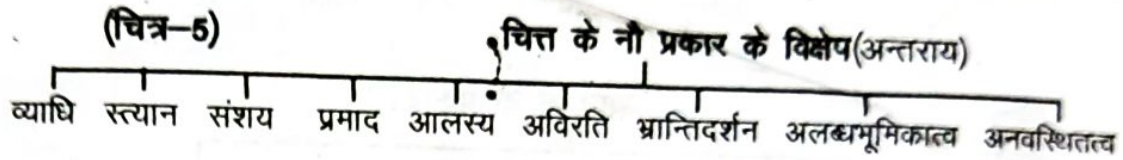 (चित्र–5)
चित्त के नौ प्रकार के विक्षेप(अन्तराय)
व्याधि स्त्यान संशय प्रमाद आलस्य अविरति भ्रान्तिदर्शन अलब्धभूमिकात्व अनवस्थितत्व